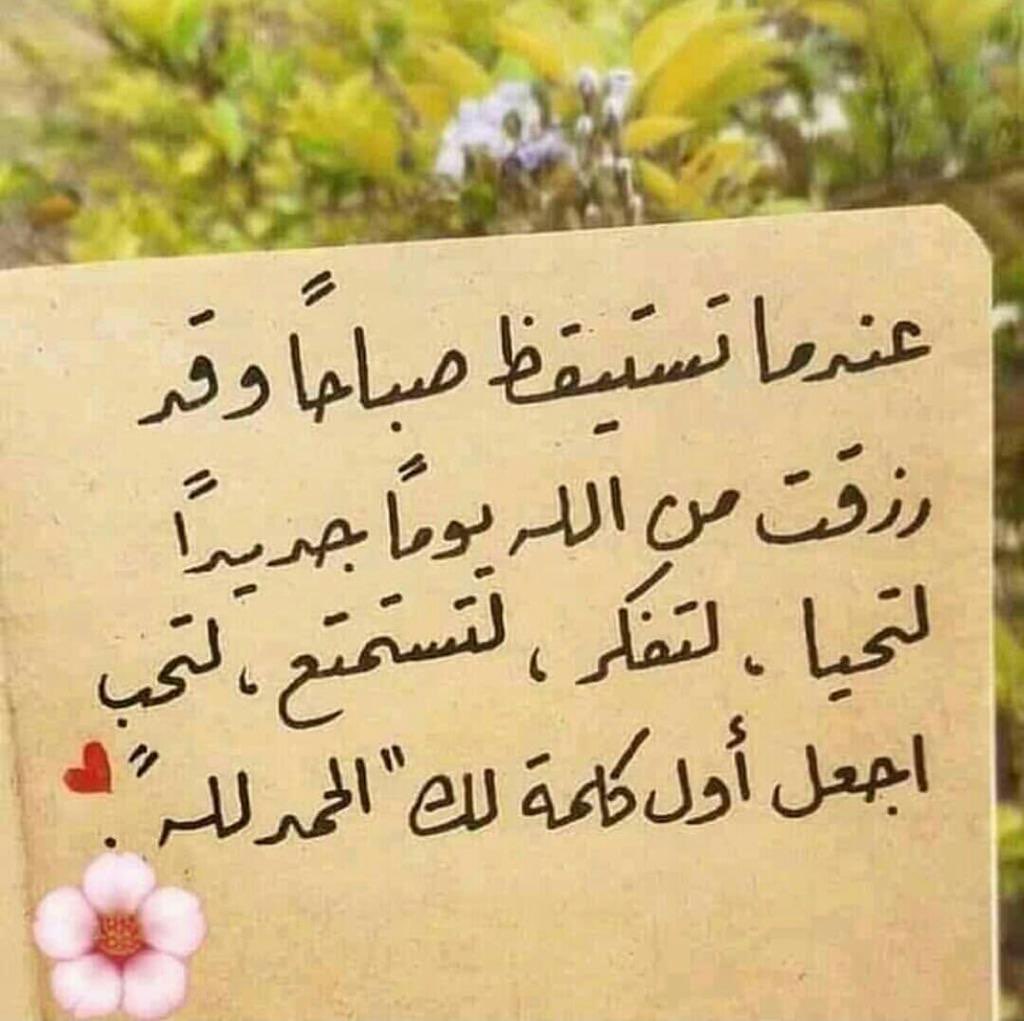 عندما تستيقظ صباحاً وقد
رزقت من الله يوماً جديداً
لتحيا ، لتفكر ، لتستمتع ، لتحب
اجعل أول كلمة لك "الحمد لله" .